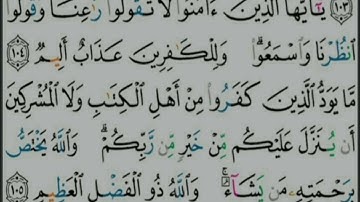 ١٠٣ يَٰٓأَيُّهَا ٱلَّذِينَ ءَامَنُوا۟ لَا تَقُولُوا۟ رَٰعِنَا وَقُولُوا۟
ٱنظُرْنَا وَٱسْمَعُوا۟ ۗ وَلِلْكَٰفِرِينَ عَذَابٌ أَلِيمٌ ١٠٤
مَّا يَوَدُّ ٱلَّذِينَ كَفَرُوا۟ مِنْ أَهْلِ ٱلْكِتَٰبِ وَلَا ٱلْمُشْرِكِينَ
أَن يُنَزَّلَ عَلَيْكُم مِّنْ خَيْرٍ مِّن رَّبِّكُمْ ۗ وَٱللَّهُ يَخْتَصُّ
بِرَحْمَتِهِۦ مَن يَشَآءُ ۚ وَٱللَّهُ ذُو ٱلْفَضْلِ ٱلْعَظِيمِ ١٠٥